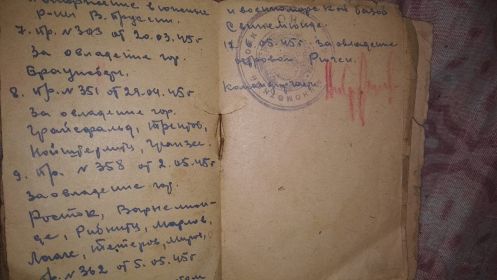 В. Пруссии.
7. Пр. № 303 от 20.03.45г
За овладение гор.
Браунсберг.
8. Пр. № 351 от 29.04.45г
За овладение гор.
Грайсфальд, Трептов,
Нойштрелиц, Гранзее.
9. Пр. № 358 от 2.05.45г
За овладение гор.
Росток, Варнемюн-
де, Рибниц, Марлов,
Лааге, Тетеров, Миров,
№ 362 от 5.05.45г
и военноморской базой
Свинемюнде.
6.05.45г. За овладение
островом Рюген.
Командир части